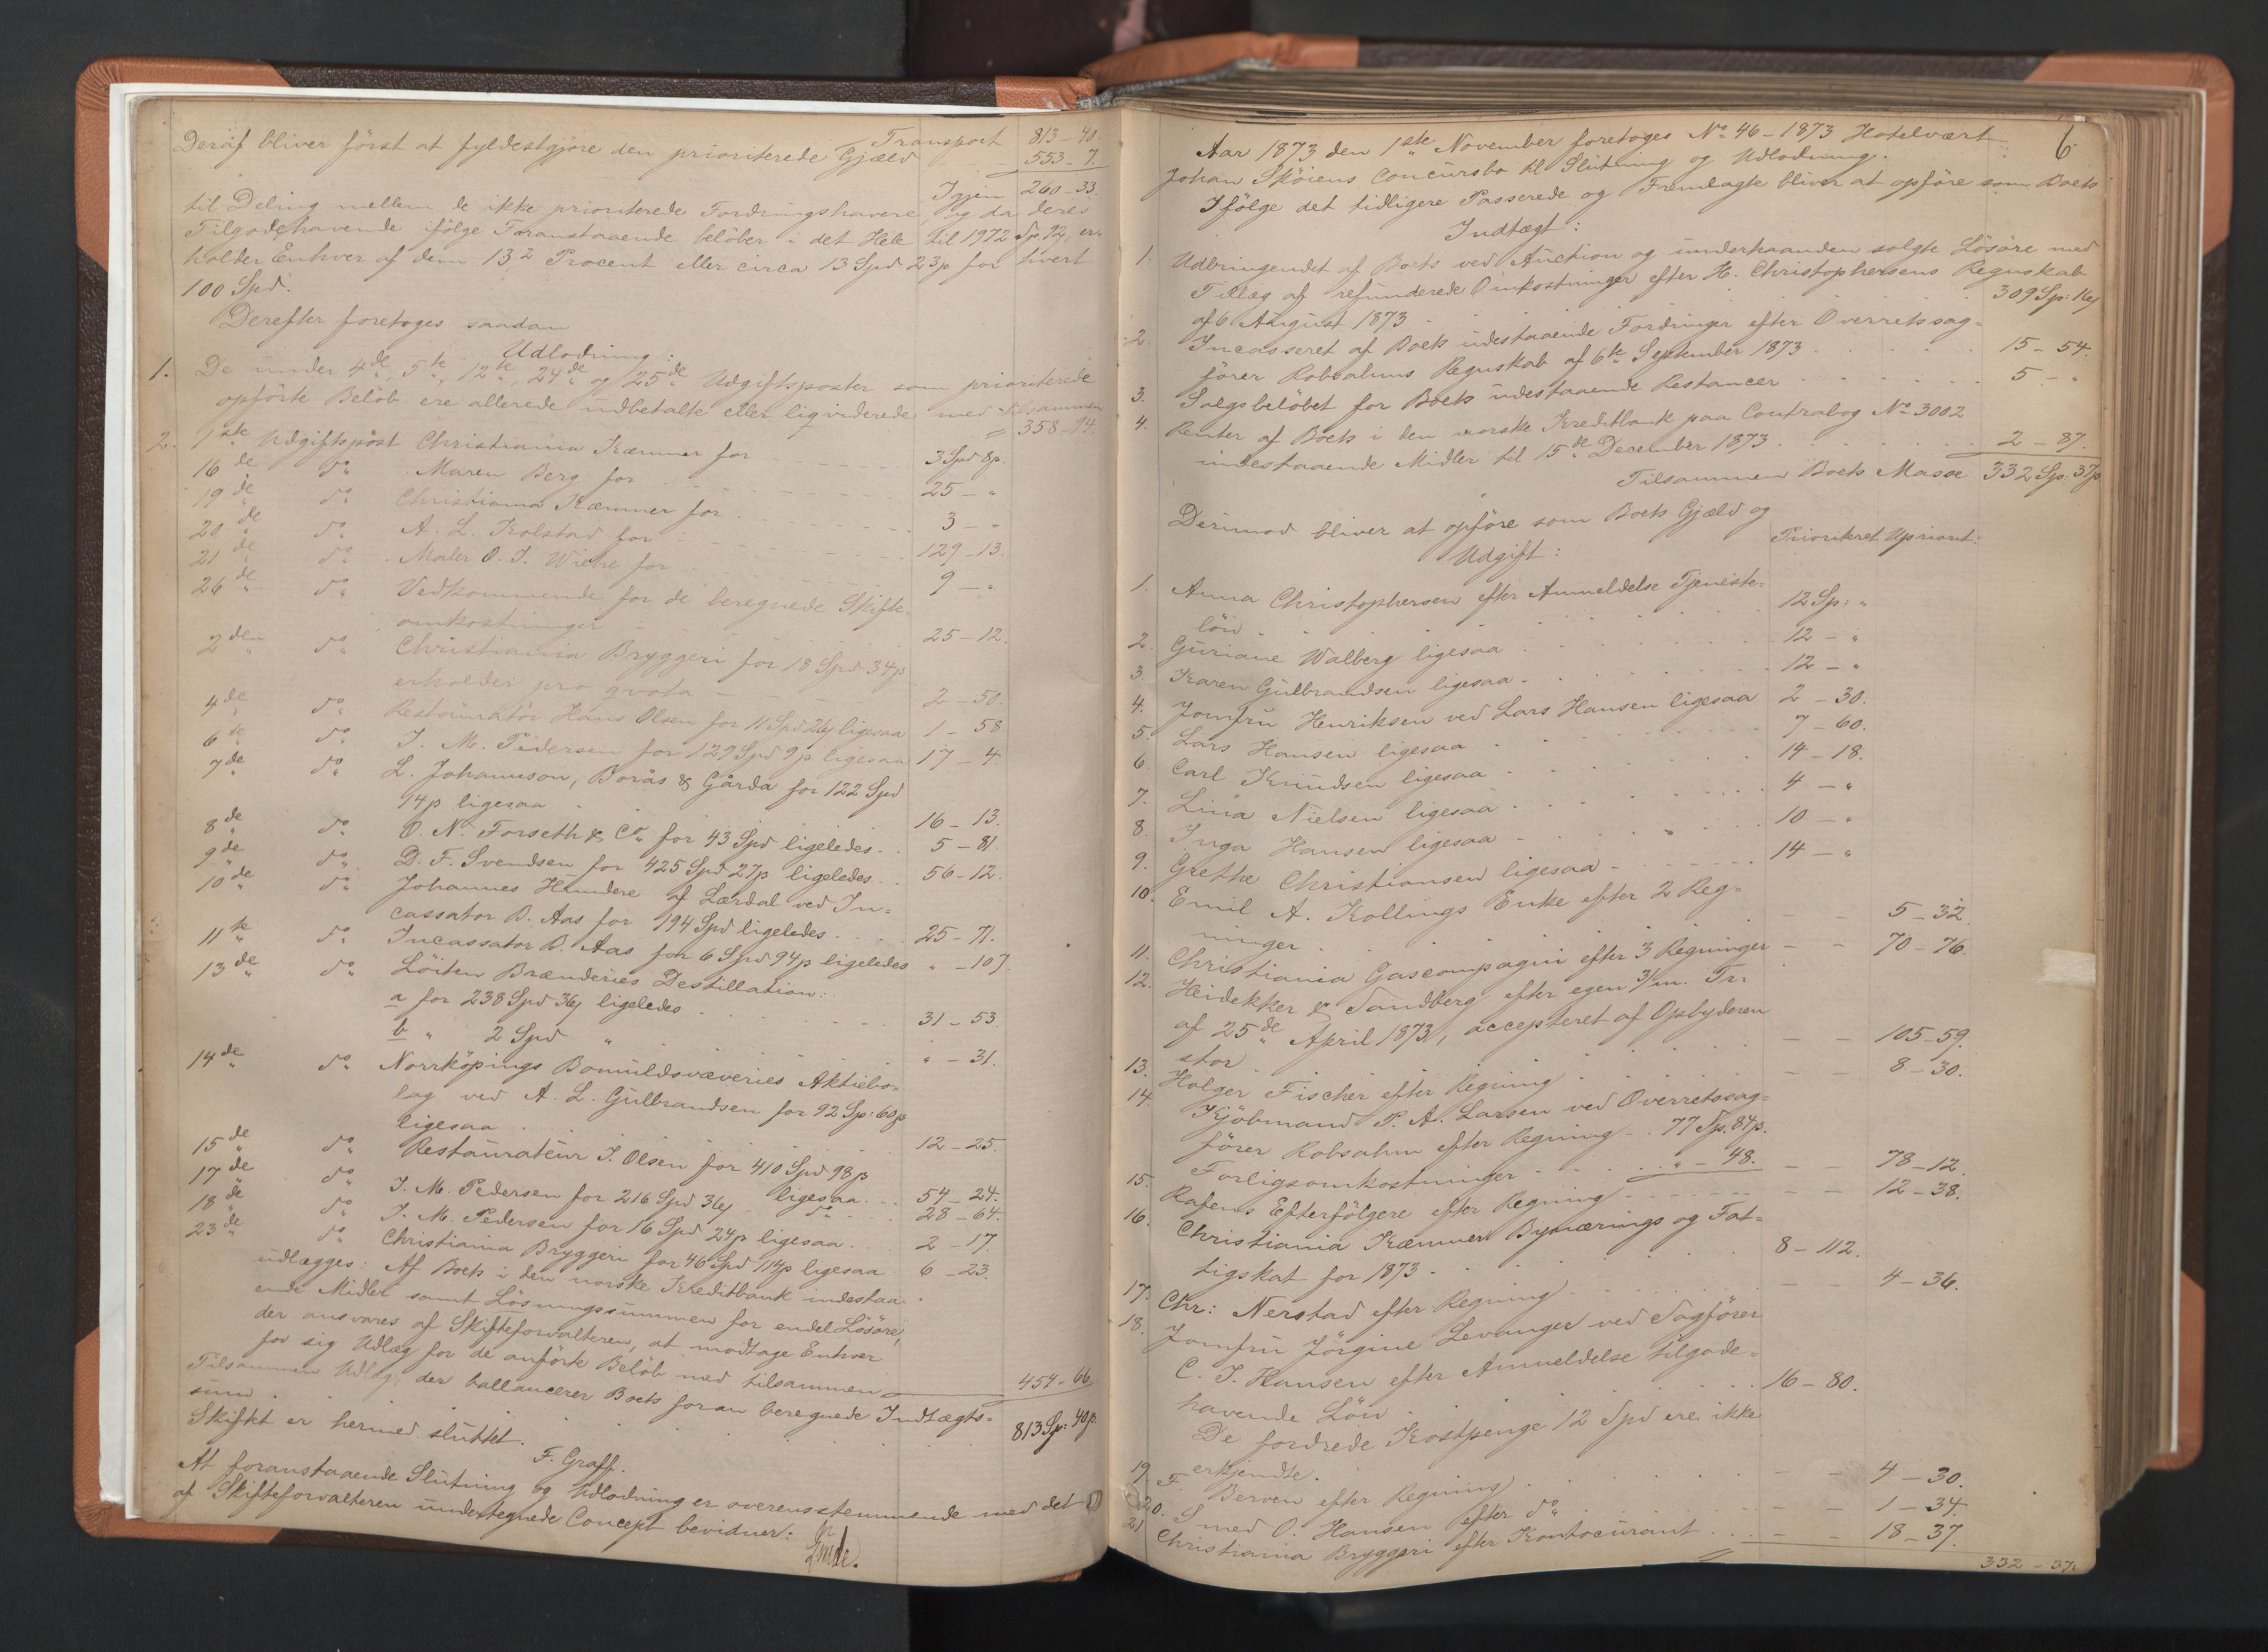 Transport 813-40.
Deraf bliver först at fyldestgjöre den prioriterede Gjæld 553-7.
Igjen 260-33.
til Deling mellem de ikke prioriterede Fordringshavere, og da deres
Tilgodehavende ifölge Foranstaaende belöber i det Hele til 1972 Sp. 92, er-
holder Enhver af dem 13,2 Procent eller circa 13 Spd 23p for hvert
100 Spd.
Derefter foretoges saadan
Udlodning:
1. De under 4de, 5te, 12te, 24de og 25de Udgiftsposter som prioriterede
opförte Belöb ere allerede udbetalte eller ligviderede med tilsammen
358-94.
2. 1ste Udgiftspost Christiania Kæmner for 3 Spd 8p.
16de do Maren Berg for 25 - "
19de do Christiania Kæmner for 3 - "
20de do A. L. Kolstad for 129-13.
21de do Maler O. J. Wiehe for 9 - "
26de do Vedkommende for de beregnede Skifte-
omkostninger 25-12.
2den do Christiania Bryggeri for 18 Spd 34p
erholder pro qvota 2-50.
4de do Restauratör Hans Olsen for 11 Spd 26p ligesaa 1-58
6te do J. M. Pedersen for 129 Spd 9p ligesaa 17-4.
7de do L. Johannson, Borås & Gårda for 122 Spd
94p ligesaa 16-13.
8de do O. N. Forseth & Co for 43 Spd ligeledes 5-81.
9de do D. F. Svendsen for 425 Spd 27p ligeledes 56-12.
10de do Johannes Hundere af Lærdal ved In-
cassator B. Aas for 194 Spd ligeledes 25-71.
11te do Incassator B. Aas for 6 Spd 94p ligeledes " -107.
13de do Löiten Brænderies Destillation:
a for 238 Spd 36p ligeledes 31-53.
b " 2 Spd " " -31.
14de do Norrköpings Bomuldsvæveries Aktiebo-
lag ved A. L. Gulbrandsen for 92 Sp: 60p
ligesaa 12-25.
15de do Restaurateur J. Olsen for 410 Spd 98p
ligesaa 54-24.
17de do J. M. Pedersen for 216 Spd 36p do 28-64.
18de do J. M. Pedersen for 16 Spd 24p ligesaa 2-17.
23de do Christiania Bryggeri for 46 Spd 114p ligesaa 6-23.
udlægges: Af Boets i den norske Kreditbank indestaa-
ende Midler samt Lösningssummen for endel Lösöre,
der ansvares af Skifteforvalteren, at modtage Enhver
for sig Udlæg for de anförte Belöb med tilsammen 454-66.
Tilsammen Udlæg, der ballancerer Boets foran beregnede Indtægts-
sum 813 Sp: 40p.
Skiftet er hermed sluttet.
F. Graff.
At foranstaaende Slutning og Udlodning er overensstemmende med det
af Skifteforvalteren undertegnede Concept bevidner:
6
Aar 1873 den 1ste November foretoges No 46-1873 Hotelvært
Johan Sköiens Concursbo til Slutning og Udlodning.
Ifölge det tidligere Passerede og Fremlagte bliver at opföre som Boets
Indtægt:
1. Udbringendet af Boets ved Auction og underhaanden solgte Lösöre med
Tillæg af refunderede Omkostninger efter H. Christophersens Regnskab
af 6 August 1873 309 Sp: 16p
2. Incasseret af Boets udestaaende Fordringer efter Overretssag-
förer Robsahms Regnskab af 6te September 1873 15-54.
3. Salgsbelöbet for Boets udestaaende Restancer 5 - "
4. Renter af Boets i den norske Kreditbank paa Contrabog No 3002
indestaaende Midler til 15de December 1873 2-87.
Tilsammen Boets Masse 332 Sp: 37p
Derimod bliver at opföre som Boets Gjæld og
Udgift: Prioriteret Upriorit:
1. Anna Christophersen efter Anmeldelse Tjeneste-
lön 12 Sp: "
2. Guriane Walberg ligesaa 12 - "
3. Karen Gulbrandsen ligesaa 12 - "
4. Jomfru Henriksen ved Lars Hansen ligesaa 2-30.
5. Lars Hansen ligesaa 7-60.
6. Carl Knudsen ligesaa 14-18.
7. Lina Nielsen ligesaa 4 - "
8. Inga Hansen ligesaa 10 - "
9. Grethe Christiansen ligesaa 14 - "
10. Emil A. Kollings Enke efter 2 Reg-
ninger 5-32.
11. Christiania Gascompagni efter 3 Regninger 70-76.
12. Heidekker & Sandberg efter egen 3/m. Tr:
af 25de April 1873, accepteret af Opbyderen
stor 105-59.
13. Holger Fischer efter Regning 8-30.
14. Kjöbmand P. A. Larsen ved Overretssag-
förer Robsahm efter Regning 77 Sp. 84p.
Forligsomkostninger " - 48. 78-12.
15. Rafens Efterfölgere efter Regning 12-38.
16. Christiania Kæmner Bynærings og Fat-
tigskat for 1873 8-112.
17. Chr: Nerstad efter Regning 4-36.
18. Jomfru Jörgine Levanger ved Sagförer
C. J. Hansen efter Anmeldelse tilgode-
havende Lön 16-80.
De fordrede Kostpenge 12 Spd ere ikke
erkjendte.
19. F. Berven efter Regning 4-30.
20. Smed O. Hansen efter do 1-34.
21. Christiania Bryggeri efter Kontocurant 18-37.
332-37.